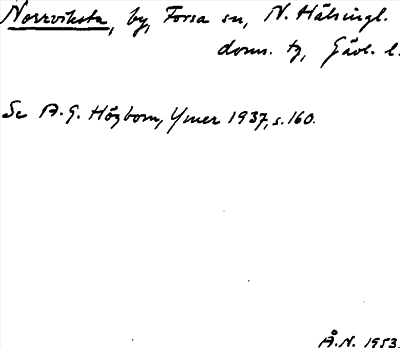 Norrviksta, by, Forsa sn, N. Hälsingl.
doms. tg, Gävl. l.
Se A. G. Högbom, Ymer 1937, s. 160.
Å. N. 1953.